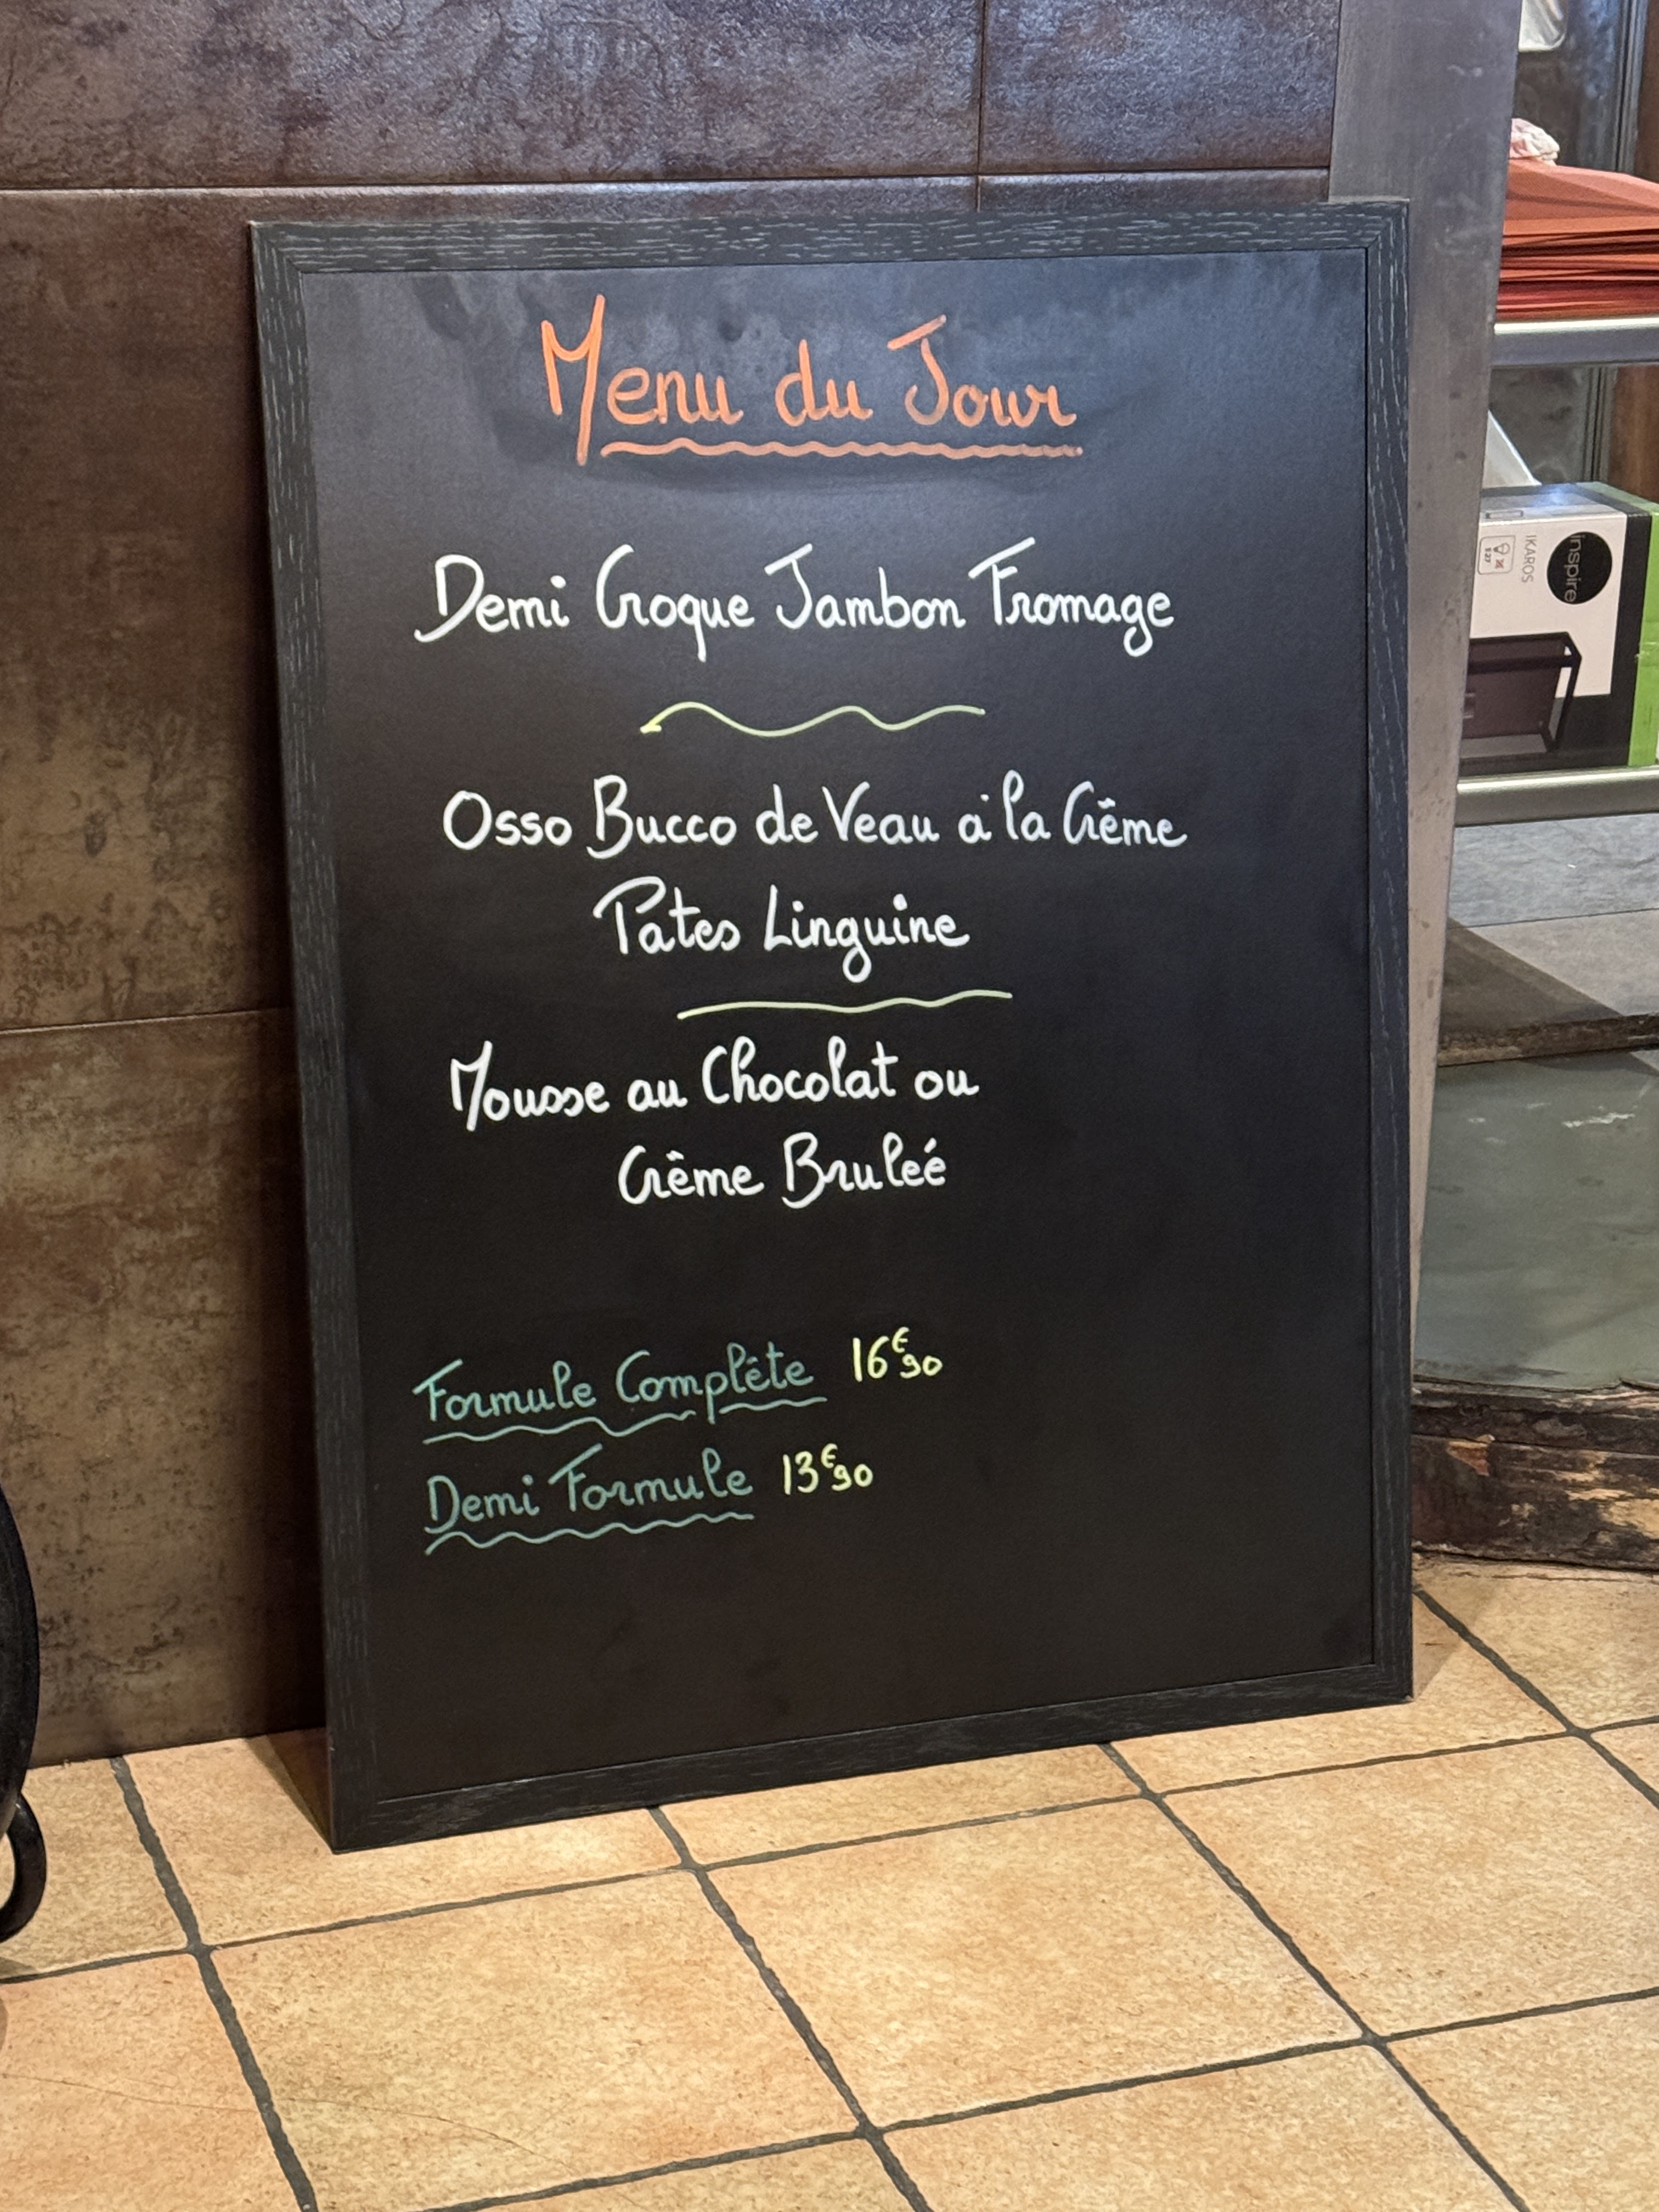 Menu du Jour
Demi Croque Jambon Fromage
Osso Bucco de Veau à la Crême
Pates Linguine
Mousse au Chocolat ou
Crême Bruleé
Formule Complête 16€90
Demi Formule 13€90
inspire
IKAROS
E27